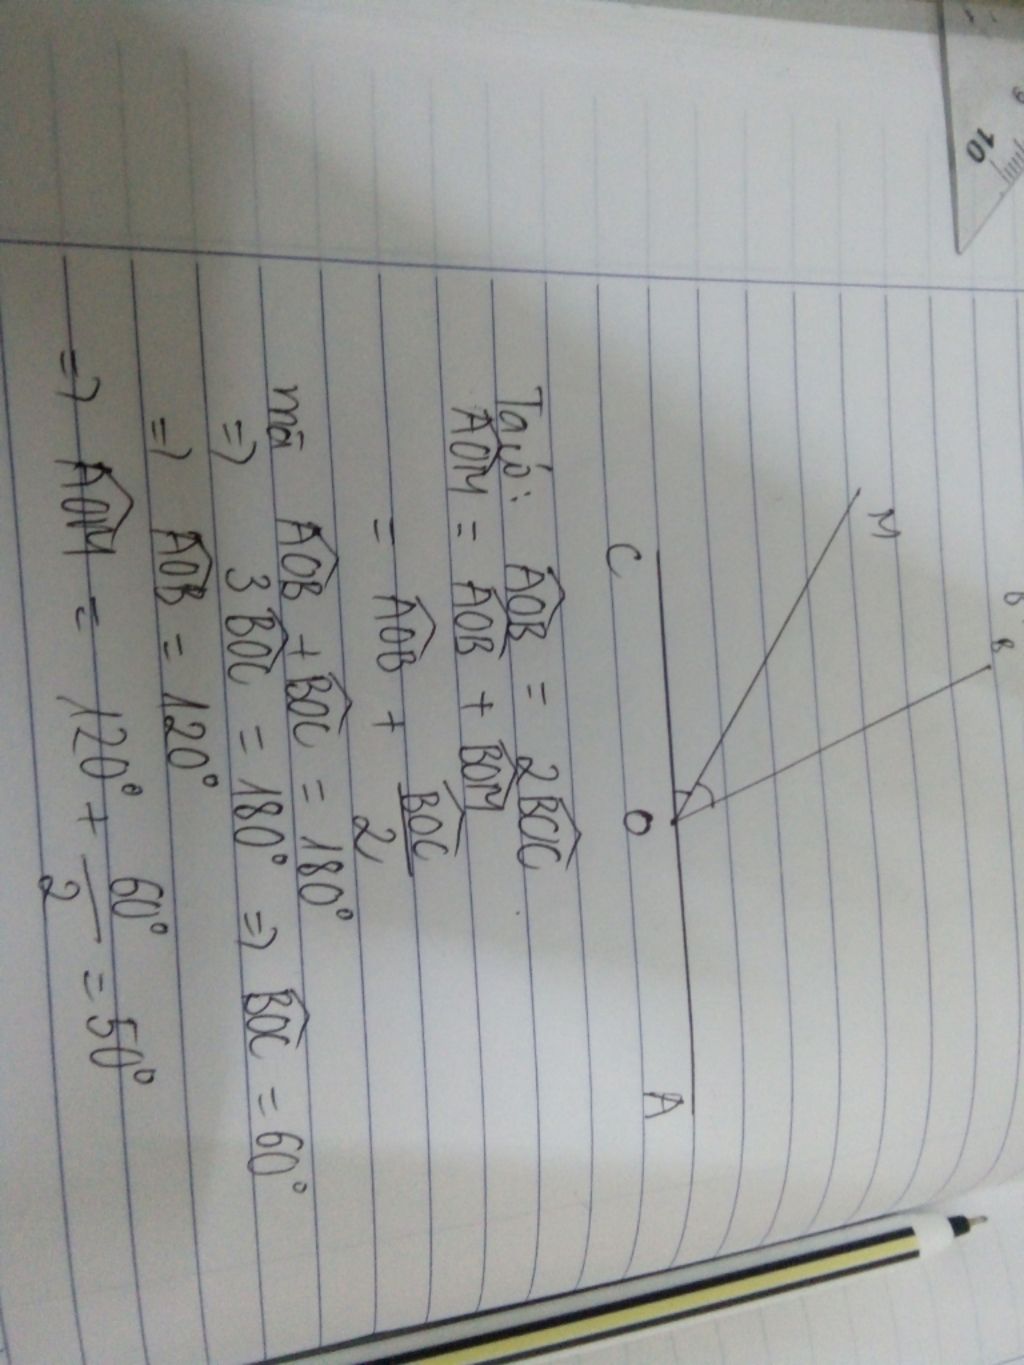 10
B
B
M
C
O
A
Ta có: AÔB = 2BÔC
AÔM = AÔB + BÔM
= AÔB + BÔC/2
mà AÔB + BÔC = 180°
=> 3BÔC = 180° => BÔC = 60°
=> AÔB = 120°
=> AÔM = 120° + 60°/2 = 50°